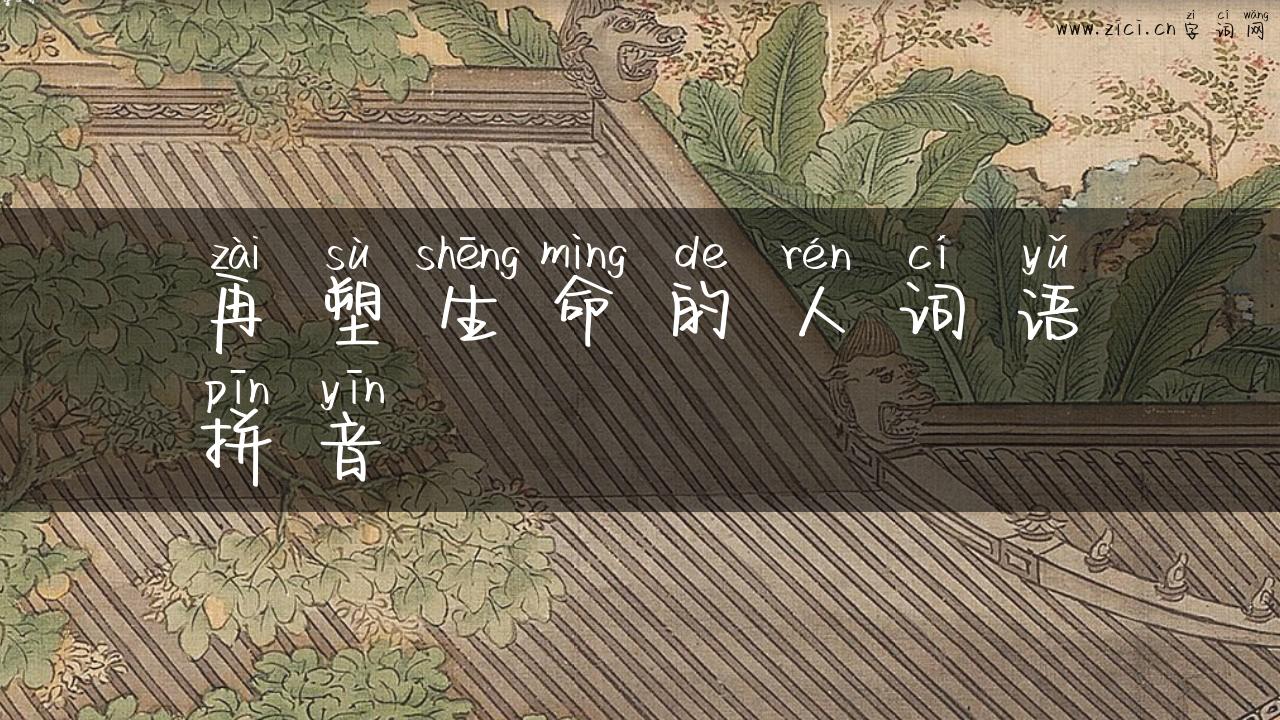 zì cí wǎng
www.zici.cn 字词网
zài sù shēng mìng de rén cí yǔ
再塑生命的人词语
pīn yīn
拼音